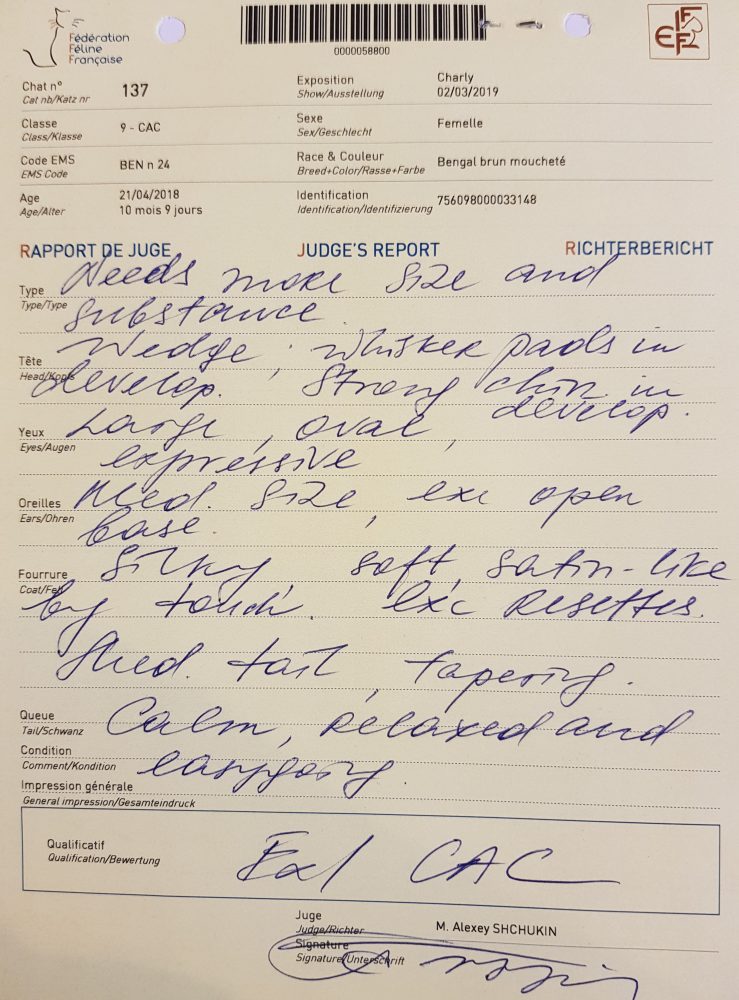 Fédération
Féline
Française
0000058800
FIFE
Chat n° 137
Cat nb/Katz nr
Exposition Charly
Show/Ausstellung 02/03/2019
Classe 9 - CAC
Class/Klasse
Sexe Femelle
Sex/Geschlecht
Code EMS BEN n 24
EMS Code
Race & Couleur Bengal brun moucheté
Breed+Color/Rasse+Farbe
Age 21/04/2018
Age/Alter 10 mois 9 jours
Identification 756098000033148
Identification/Identifizierung
RAPPORT DE JUGE JUDGE'S REPORT RICHTERBERICHT
Type Needs more size and
Type/Type substance
Tête Wedge, whisker pads in
Head/Kopf develop. Strong chin in
develop.
Yeux Large, oval,
Eyes/Augen expressive
Oreilles Med. size, exc open
Ears/Ohren base.
Fourrure Silky, soft, satin-like
Coat/Fell by touch. Exc Rosettes.
Med. tail, tapering.
Queue Calm, relaxed and
Tail/Schwanz
Condition easygoing.
Comment/Kondition
Impression générale
General impression/Gesamteindruck
Qualificatif Ex1 CAC
Qualification/Bewertung
Juge M. Alexey SHCHUKIN
Judge/Richter
Signature
Signature/Unterschrift